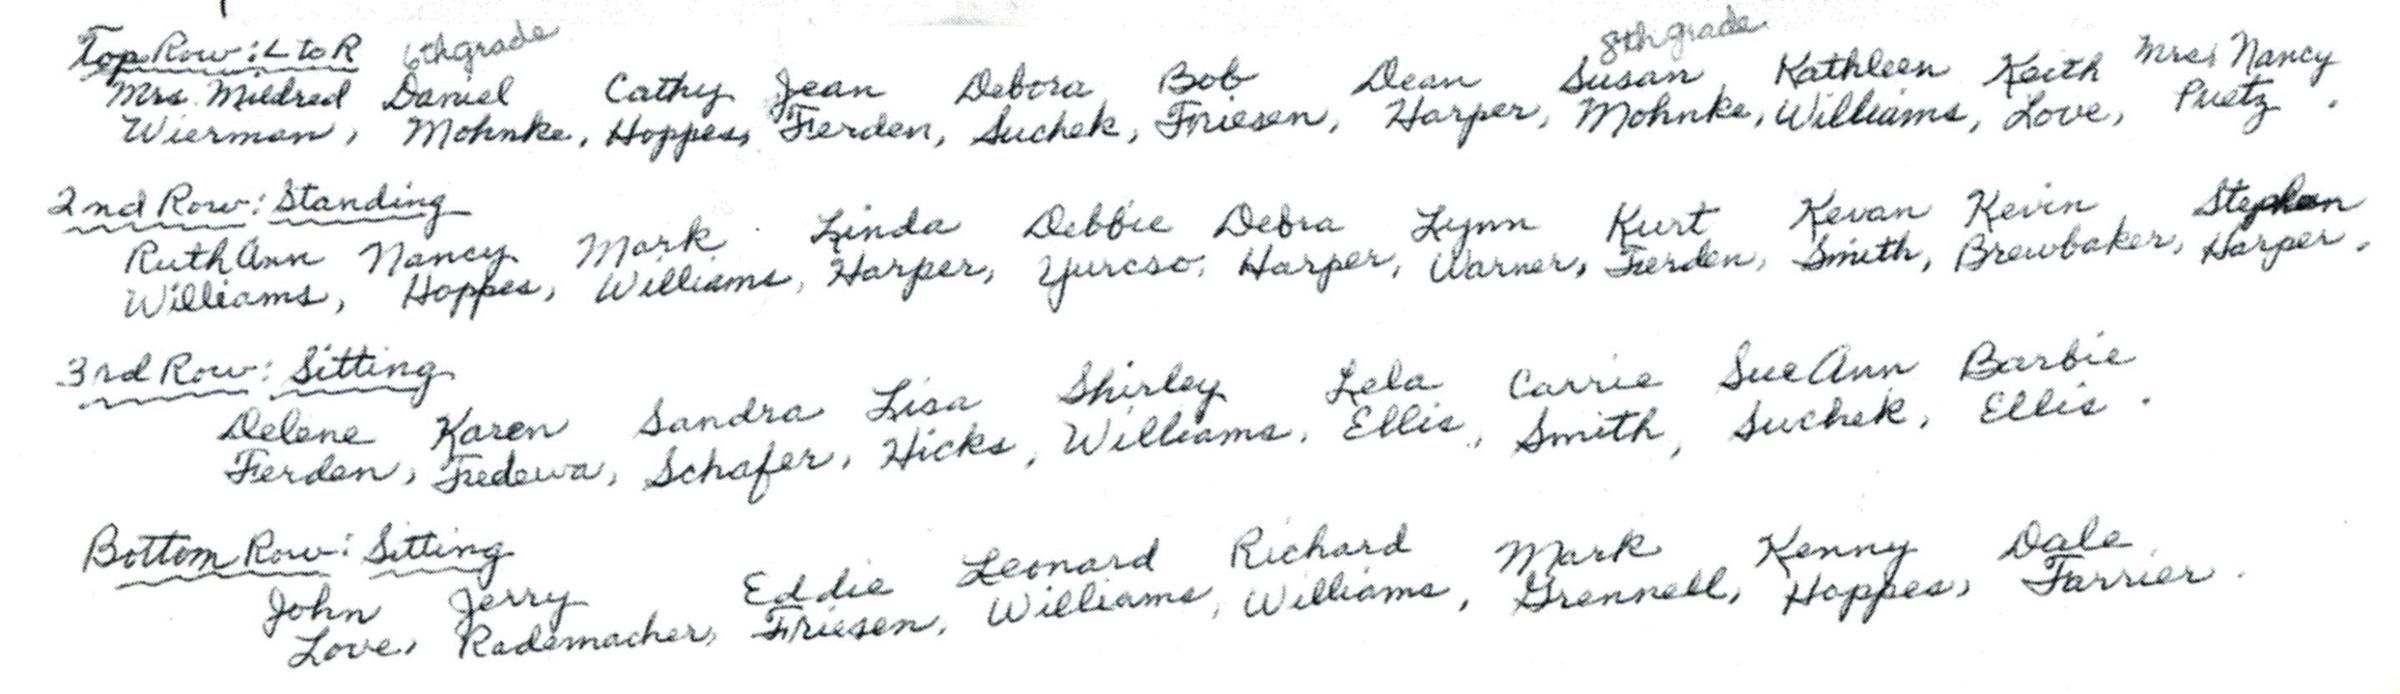 Top Row: L to R 6th grade 8th grade
Mrs. Mildred Daniel Cathy Jean Debora Bob Dean Susan Kathleen Keith Mrs. Nancy
Wierman, Mohnke, Hoppes, Ferden, Suchek, Friesen, Harper, Mohnke, Williams, Love, Puetz.
2nd Row: Standing
RuthAnn Nancy Mark Linda Debbie Debra Lynn Kurt Kevan Kevin Stephen
Williams, Hoppes, Williams, Harper, Yurcso, Harper, Warner, Ferden, Smith, Brewbaker, Harper.
3rd Row: Sitting
Delene Karen Sandra Lisa Shirley Lela Carrie SueAnn Barbie
Ferden, Fedewa, Schafer, Hicks, Williams, Ellis, Smith, Suchek, Ellis.
Bottom Row: Sitting
John Jerry Eddie Leonard Richard Mark Kenny Dale
Love, Rademacher, Friesen, Williams, Williams, Grennell, Hoppes, Farrier.